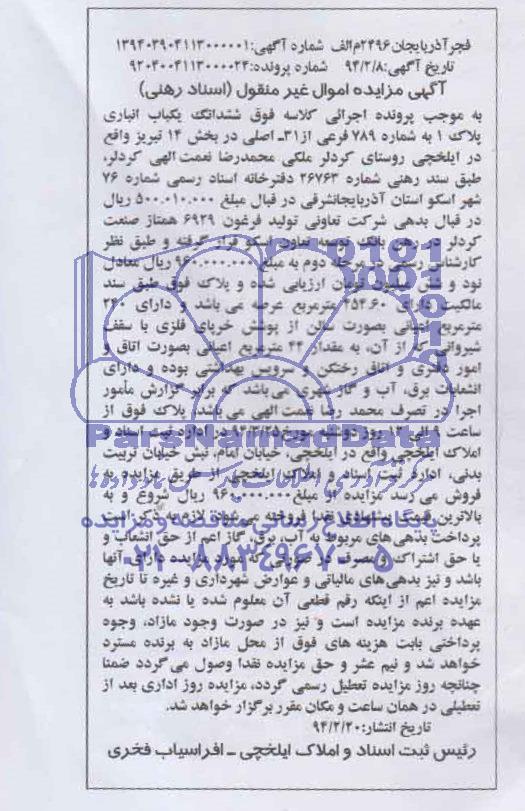 فجرآذربایجان۲۴۹۶م‌الف شماره آگهی:۱۳۹۴۰۳۹۰۴۱۱۳۰۰۰۰۰۱
تاریخ آگهی:۹۴/۲/۸ شماره پرونده:۹۲۰۴۰۰۴۱۱۳۰۰۰۰۲۴
آگهی مزایده اموال غیر منقول (اسناد رهنی)
به موجب پرونده اجرائی کلاسه فوق ششدانگ یکباب انباری
پلاک ۱ به شماره ۷۸۹ فرعی از۳۱ـ اصلی در بخش ۱۴ تبریز واقع
در ایلخچی روستای کردلر ملکی محمدرضا نعمت الهی کردلر،
طبق سند رهنی شماره ۲۶۷۶۳ دفترخانه اسناد رسمی شماره ۷۶
شهر اسکو استان آذربایجانشرقی در قبال مبلغ ۵۰۰.۰۱۰.۰۰۰ ریال
در قبال بدهی شرکت تعاونی تولید فرغون ۶۹۲۹ همتاز صنعت
کردلر در رهن بانک توسعه تعاون اسکو قرار گرفته و طبق نظر
کارشناس رسمی در مرحله دوم به مبلغ ۹۶۰.۰۰۰.۰۰۰ ریال معادل
نود و شش میلیون تومان ارزیابی شده و پلاک فوق طبق سند
مالکیت دارای ۴۵۴.۶۰ مترمربع عرصه می باشد و دارای ۲۶۰
مترمربع اعیانی بصورت سالن از پوشش خرپای فلزی با سقف
شیروانی که از آن، به مقدار ۴۴ مترمربع اعیانی بصورت اتاق و
امور دفتری و اتاق رختکن و سرویس بهداشتی بوده و دارای
انشعابات برق، آب و گاز شهری می باشد که برابر گزارش مأمور
اجرا در تصرف محمد رضا نعمت الهی می باشد، پلاک فوق از
ساعت ۹ الی ۱۲ روز دوشنبه مورخ ۹۴/۳/۲۵ در اداره ثبت اسناد و
املاک ایلخچی واقع در ایلخچی، خیابان امام، نبش خیابان تربیت
بدنی، اداره ثبت اسناد و املاک ایلخچی از طریق مزایده به
فروش می رسد مزایده از مبلغ ۹۶۰.۰۰۰.۰۰۰ ریال شروع و به
بالاترین قیمت پیشنهادی نقدا فروخته می شود. لازم به ذکر است
پرداخت بدهی های مربوط به آب، برق، گاز اعم از حق انشعاب و
یا حق اشتراک و مصرف در صورتی که مورد مزایده دارای آنها
باشد و نیز بدهی های مالیاتی و عوارض شهرداری و غیره تا تاریخ
مزایده اعم از اینکه رقم قطعی آن معلوم شده یا نشده باشد به
عهده برنده مزایده است و نیز در صورت وجود مازاد، وجوه
پرداختی بابت هزینه های فوق از محل مازاد به برنده مسترد
خواهد شد و نیم عشر و حق مزایده نقدا وصول می گردد ضمنا
چنانچه روز مزایده تعطیل رسمی گردد، مزایده روز اداری بعد از
تعطیلی در همان ساعت و مکان مقرر برگزار خواهد شد.
تاریخ انتشار:۹۴/۲/۲۰
رئیس ثبت اسناد و املاک ایلخچی ـ افراسیاب فخری
ParsNamadData
پایگاه اطلاع رسانی مناقصه و مزایده
۰۲۱-۸۸۳۴۹۶۷۰-۵